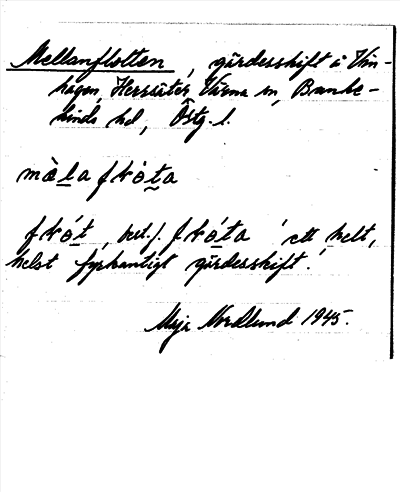 Mellanflotten, gärdesskift å Vin-
hagen, Herrsäter, Värna sn, Banke-
kinds hd, Östg. l.
mὰl̲a flo̍t̰a
flo̍t̲, best. f. flo̍t̲a 'ett helt,
helst fyrkantigt gärdesskift.'
Maja Nordlund 1945.